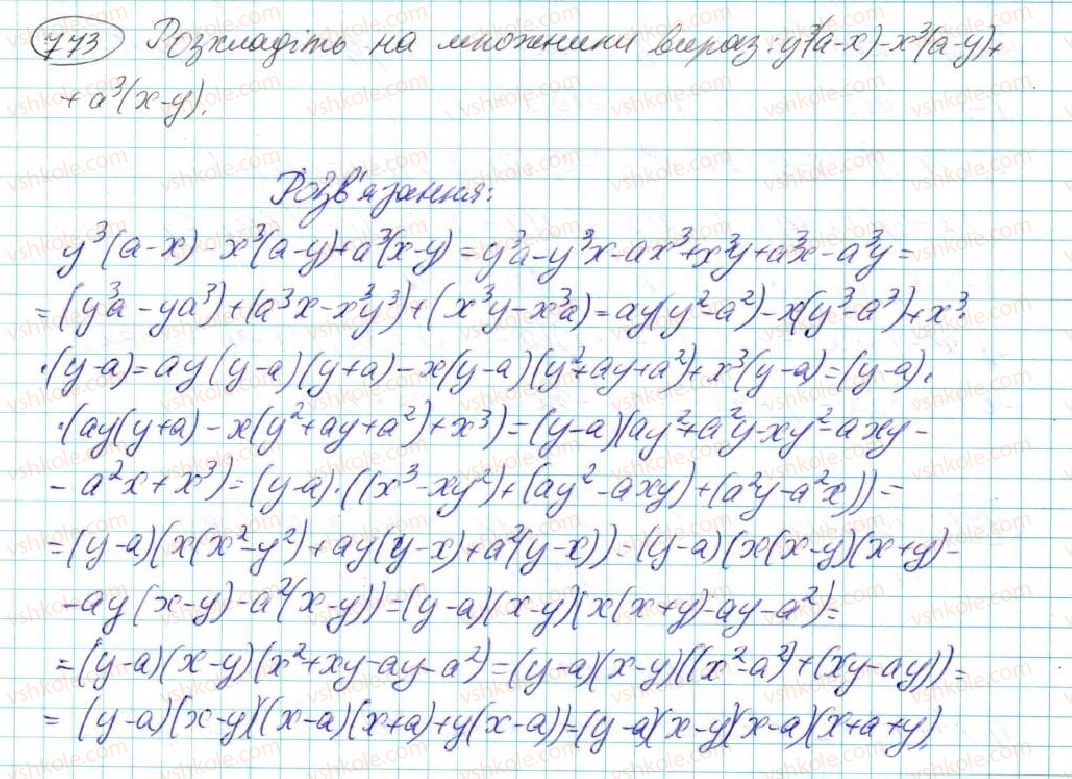 773 Розкладіть на множники вираз: y³(a-x)-x³(a-y)+
+a³(x-y).
Розв'язання:
y³(a-x)-x³(a-y)+a³(x-y)=y³a-y³x-ax³+x³y+a³x-a³y=
=(y³a-ya³)+(a³x-x³y³)+(x³y-x³a)=ay(y²-a²)-x(y³-a³)+x³·
·(y-a)=ay(y-a)(y+a)-x(y-a)(y²+ay+a²)+x³(y-a)=(y-a)·
·(ay(y+a)-x(y²+ay+a²)+x³)=(y-a)(ay²+a²y-xy²-axy-
-a²x+x³)=(y-a)·((x³-xy²)+(ay²-axy)+(a²y-a²x))=
=(y-a)(x(x²-y²)+ay(y-x)+a²(y-x))=(y-a)(x(x-y)(x+y)-
-ay(x-y)-a²(x-y))=(y-a)(x-y)(x(x+y)-ay-a²)=
=(y-a)(x-y)(x²+xy-ay-a²)=(y-a)(x-y)((x²-a²)+(xy-ay))=
=(y-a)(x-y)((x-a)(x+a)+y(x-a))=(y-a)(x-y)(x-a)(x+a+y).